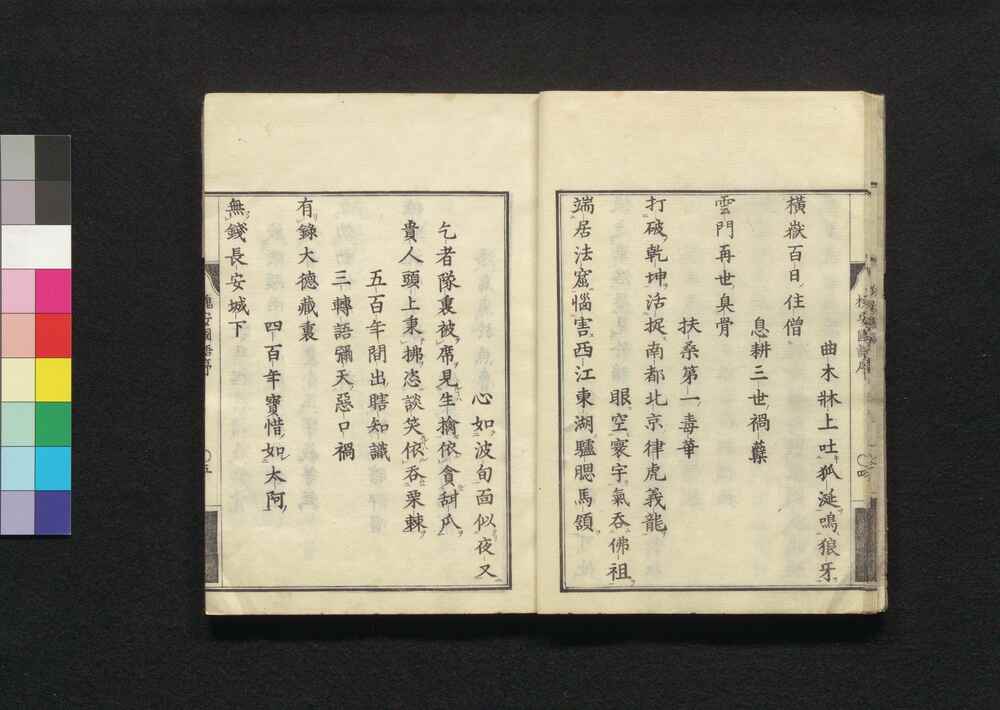 曲木牀上吐狐涎鳴狼牙
橫嶽百日住僧
息耕三世禍蘗
雲門再世臭骨
扶桑第一毒華
打破乾坤活捉南都北京律虎義龍
眼空寰宇氣吞佛祖
端居法窟惱害西江東湖驢腮馬頷
心如波旬面似夜叉
乞者隊裏被席見生擒依貪甜瓜
貴人頭上秉拂恣談笑依吞栗棘
五百年間出瞎知識
三轉語彌天惡口禍
有錄大德藏裏
四百年寶惜如太阿
無錢長安城下